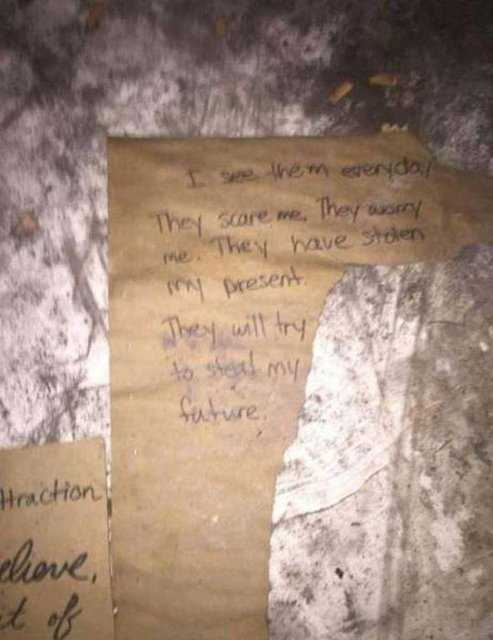 I see them everyday
They scare me. They worry
me. They have stolen
my present.
They will try
to steal my
future.
ttraction
elieve,
it of